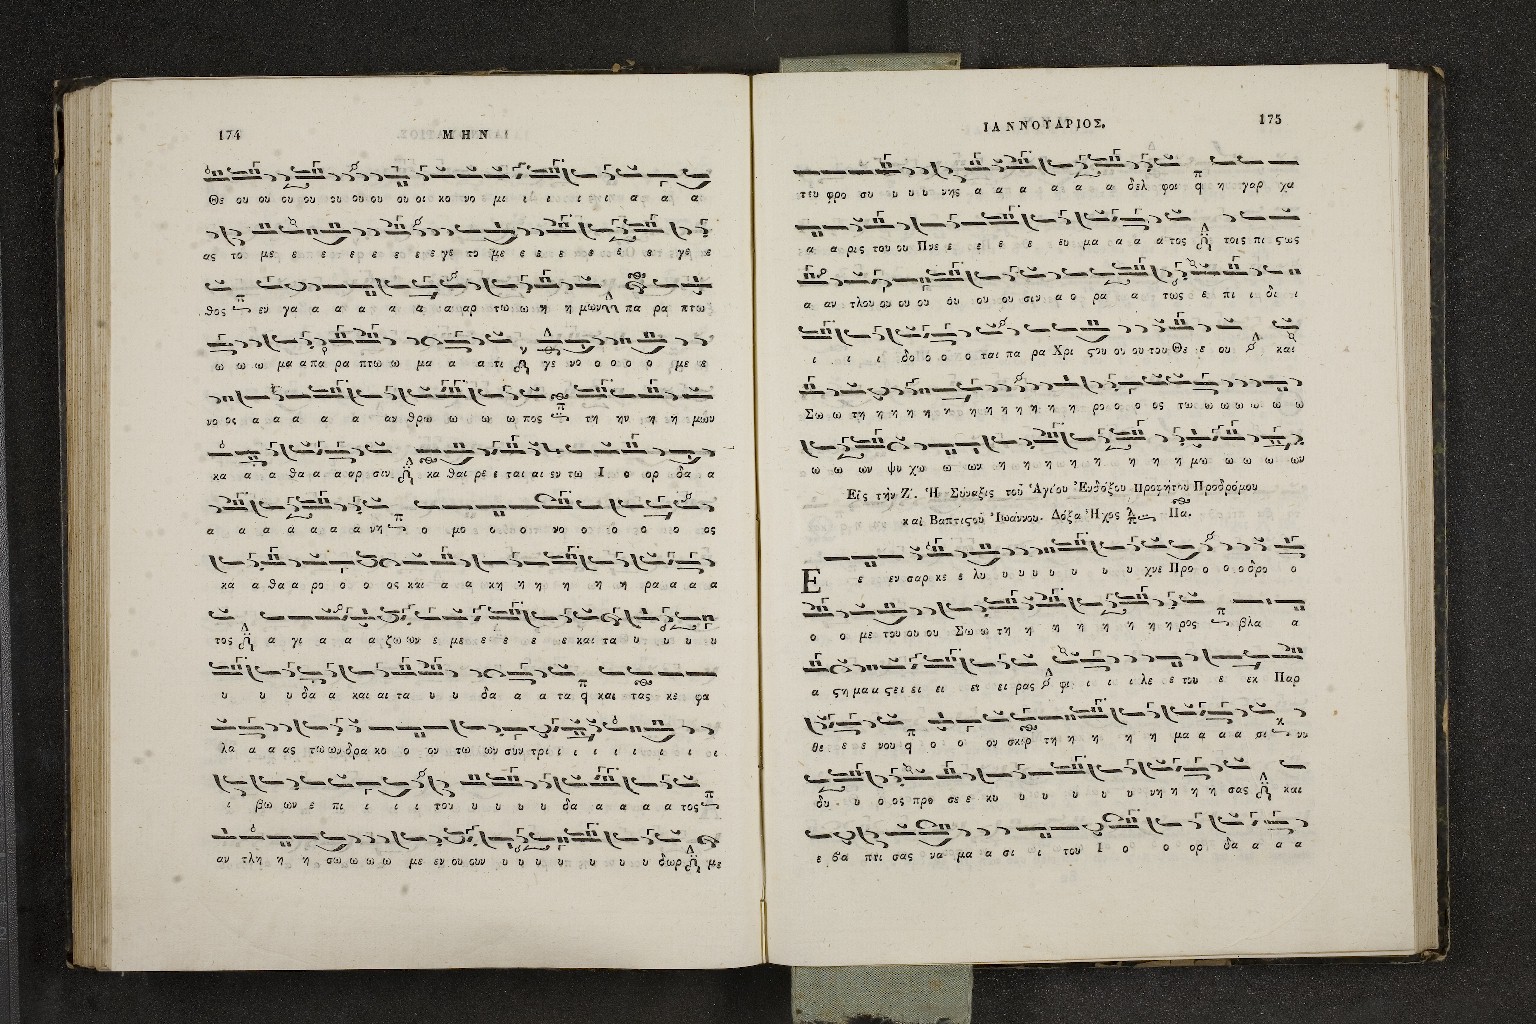 174
ΜΗΝ
Θε ου ου ου ου ου ου ου ου οι κο νο μι ι ι ι ι α α α
ας το με ε ε ε ε ε ε ε γε το με ε ε ε ε ε ε ε γε ε
θος εν γα α α α α α α αρ τω ω η η μων πα ρα πτω
ω ω ω μα α πα ρα πτω ω μα α α τι γε νο ο ο ο ο με ε
νο ος α α α α α αν θρω ω ω ω ω πος τη ην η η μων
κα α α θα α α αρ σιν κα θαι ρε ε ται αι εν τω Ι ο ορ δα α
α α α α α α α νη ο μο ο ο ο νο ο ο ο ο ο ος
κα α θα α ρο ο ο ο ος και α α κη η η η η η ρα α α α
τος α γι α α α ζω ων ε με ε ε ε ε ε και τα υ υ υ υ
υ υ υ δα α και αι τα υ υ δα α α τα και τας κε φα
λα α α ας τω ων δρα κο ο ο ον τω ων συν τρι ι ι ι ι ι ι ι
ι βω ων ε πι ι ι ι του υ υ υ υ δα α α α α τος
αν τλη η η η σω ω ω ω με εν ου ουν υ υ υ υ υ υ υ δωρ με
ΙΑΝΝΟΥΑΡΙΟΣ.
175
τευ φρο συ υ υ υ νης α α α α α α α δελ φοι η γαρ χα
α α ρις του ου Πνε ε ε ε ε ε ευ μα α α α τος τοις πι ςως
α αν τλου ου ου ου ου ου ου ου σιν α ο ρα α α τως ε πι ι δι ι
ι ι ι δο ο ο ο ται πα ρα Χρι ςου ου ου του Θε ε ου και
Σω ω τη η η η η η η η η η η η η ρο ο ο ος τω ω ω ω ω ω ω
ω ω ων ψυ χω ω ων η η η η η η η η η μω ω ω ω ων
Εἰς τὴν Ζʹ. Ἡ Σύναξις τοῦ Ἁγίου Ἐνδόξου Προφήτου Προδρόμου
καὶ Βαπτιςοῦ Ἰωάννου. Δόξα Ἦχος Πα.
Ε ε εν σαρ κε ε λυ υ υ υ υ υ υ υ χνε Προ ο ο ο δρο ο
ο ο με του ου ου Σω ω τη η η η η η η η ρος βλα α
α ςη μα α ςει ει ει ει ει ρας φι ι ι ι λε ε του ε εκ Παρ
θε ε ε νου ο ο ο ον σκιρ τη η η η η μα α α α σι νυ
ου υ ο ος προ σε ε κυ υ υ υ υ υ νη η η η σας και
ε βα πτι σας να μα α σι ι του Ι ο ο ορ δα α α α